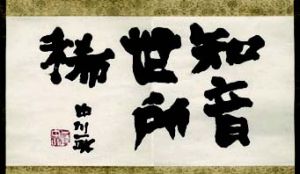 知音
世所
稀
中川一政